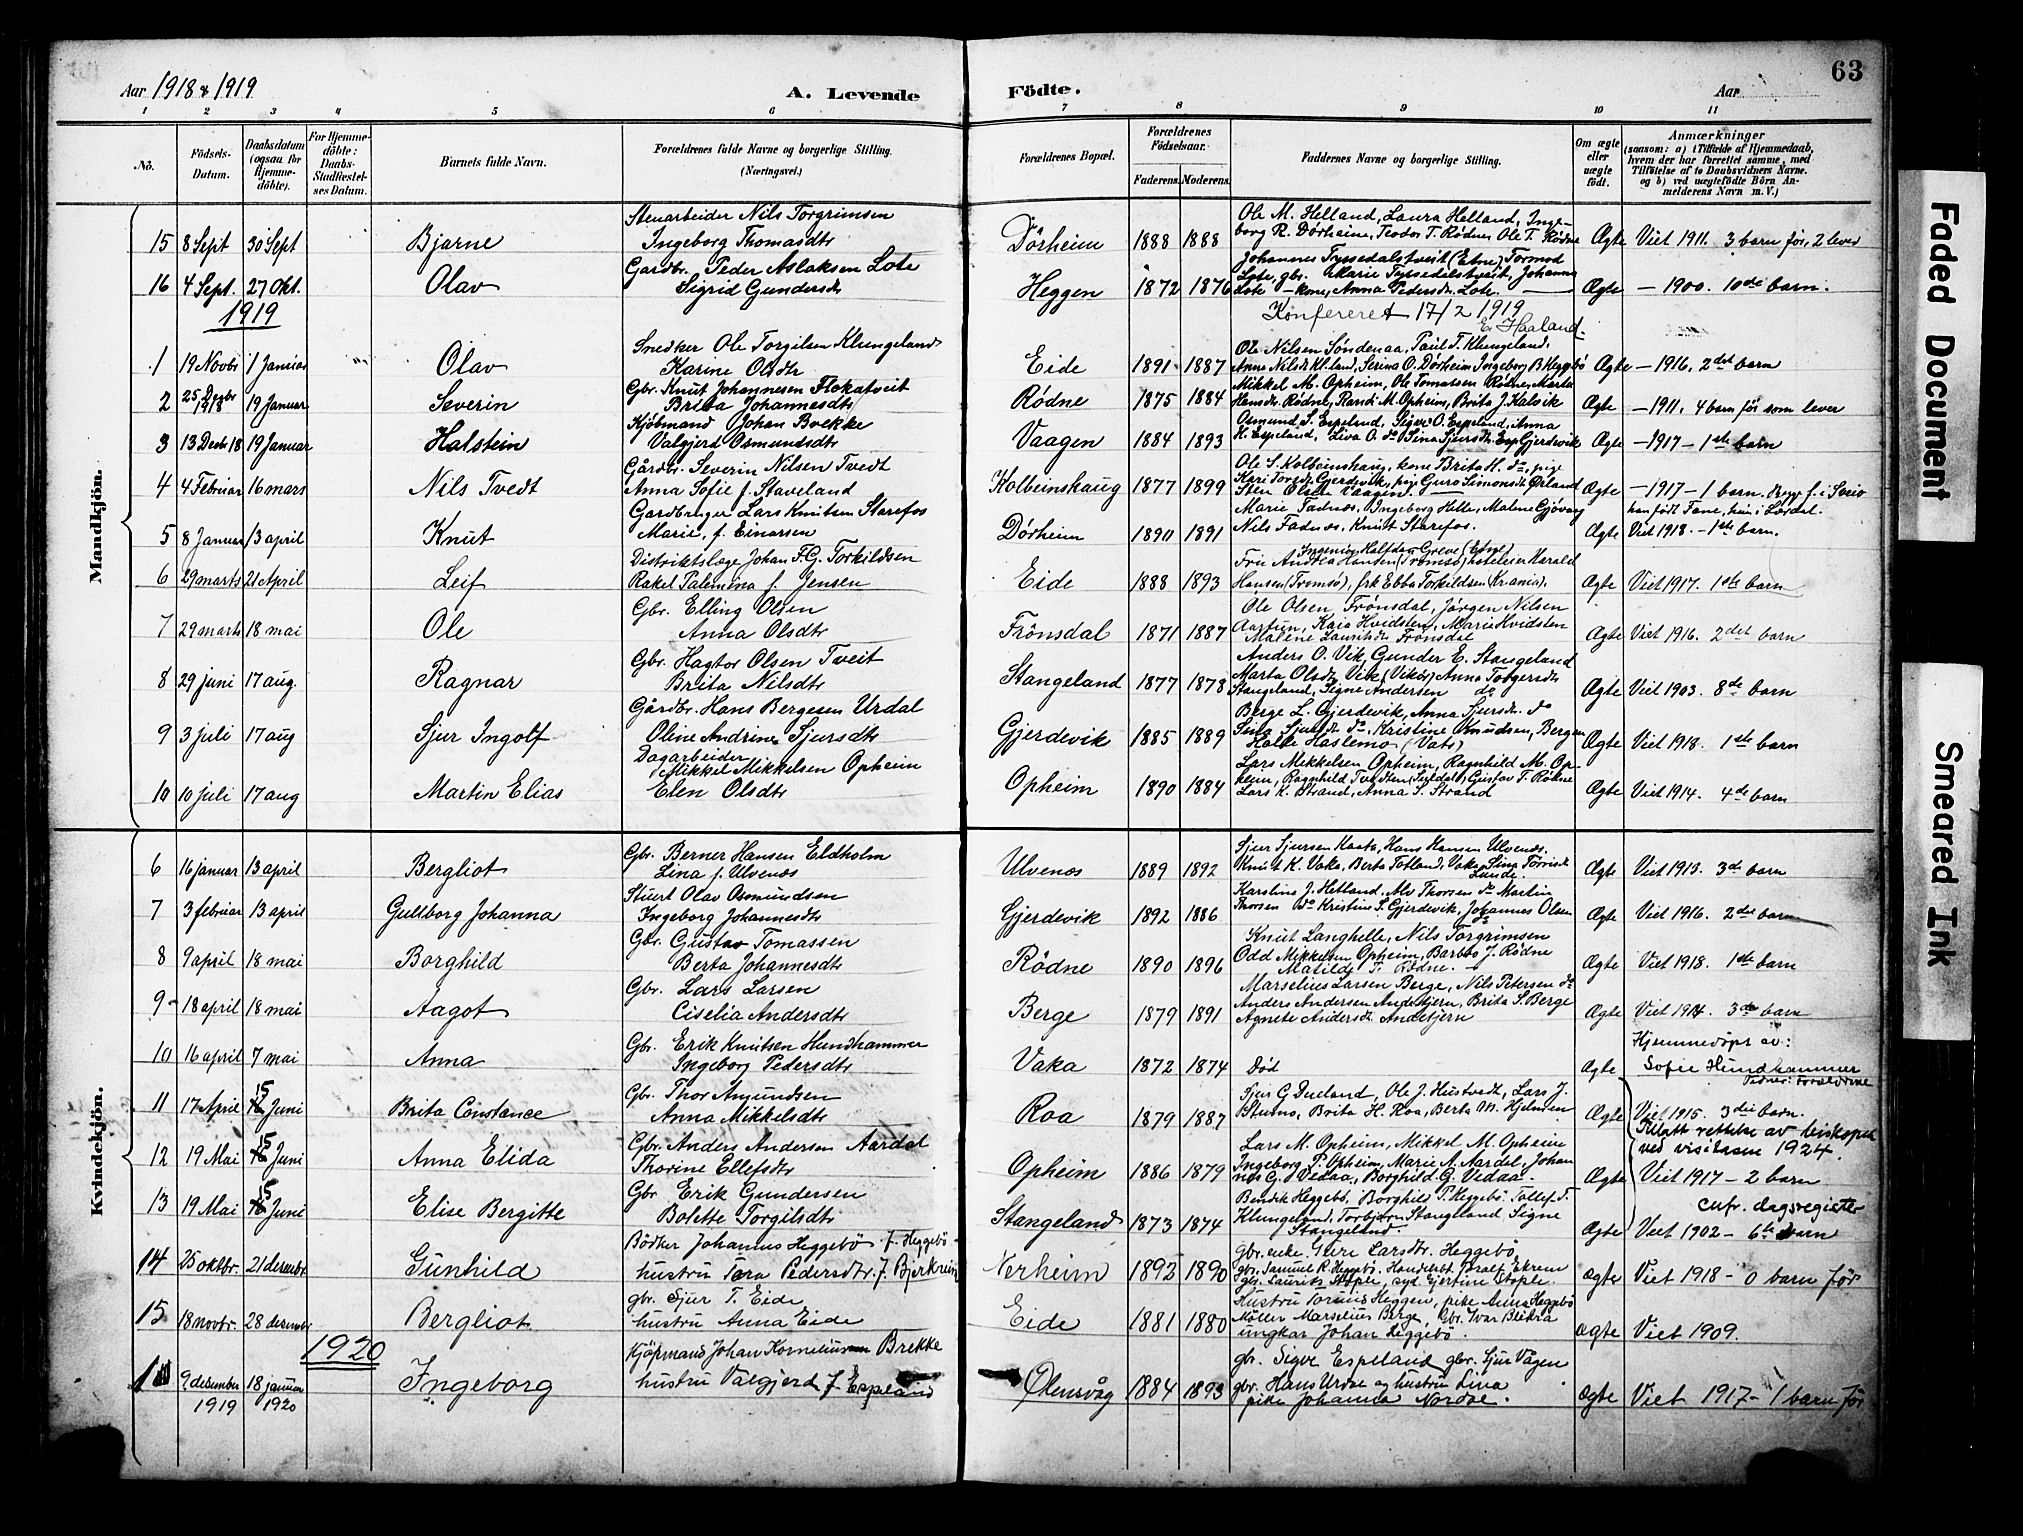 63
Aar 1918 & 1919
A. Levende Födte.
Aar
1 2 3 4 5 6 7 8 9 10 11
No.
Födsels-Datum.
Daabsdatum (ogsaa for Hjemmedöbte).
For Hjemmedöbte: Daabs-Stadfæstelses Datum.
Barnets fulde Navn.
Forældrenes fulde Navne og borgerlige Stilling. (Næringsvei.)
Forældrenes Bopæl.
Forældrenes Födselsaar.
Faderens. Moderens.
Faddernes Navne og borgerlige Stilling.
Om ægte eller uægte födt.
Anmærkninger
(saasom: a) i Tilfælde af Hjemmedaab, hvem der har forrettet samme, med Tilföielse af to Daabsvidners Navne. og b) ved uægtefödte Börn Anmelderens Navn m. V.)
Mandkjön.
15 8 Sept 30 Sept Bjarne Stenarbeider Nils Torgrimsen Ingeborg Thomasdtr Dörheim 1888 1888 Ole M. Helland, Laura Helland, Ingeborg R. Dörheim, Teodor T. Rödne, Ole T. Rödne Ægte Viet 1911. 3 barn før, 2 lever
16 4 Sept. 27 Okt. Olav Gardbr. Peder Aslaksen Lote Sigrid Gundersdtr Heggen 1872 1876 Johannes Tyssedalstveit (Etne) Tormod Lote, gbr. Marie Tyssedalstveit, Johanna Lote – kone, Anna Pedersdtr. Lote. Ægte – 1900. 10de barn.
1919
Konfereret 17/2 1919
E. Haaland.
1 19 Novbr 1 Januar Olav Snedker Ole Torgilsen Klungeland Karine Olsdtr Eide 1891 1887 Ole Nilsen Søndenaa, Paul T. Klungeland. Anne Nilsdtr Kl.land, Serina O. Dørheim Ingeborg B Heggebö Ægte – 1916. 2det barn
2 25 Decbr 1918 19 Januar Severin Gbr. Knut Johannesen Flokatveit Brita Johannesdtr Rödne 1875 1884 Mikkel M. Opheim, Ole Tomassen Rödne, Marta Hansdtr. Rødne, Randi M. Opheim, Brita J. Kalvik Ægte – 1911. 4 barn før som lever
3 13 Decb 18 19 Januar Halstein Kjøbmand Johan Brekke Valgjerd Osmundsdtr Vaagen 1884 1893 Osmund S. Espeland, Sigve O. Espeland, Anna K. Espeland, Liva O. do Sina Sjursdtr. Gjerdevik Ægte – 1917 – 1ste barn
4 4 Februar 16 mars Nils Tvedt Gårdbr. Severin Nilsen Tvedt Anna Sofie f. Staveland Kolbeinshaug 1877 1899 Ole S. Kolbeinshaug, kone Brita H. do, pige Kari Torsdtr. Gjerdevik, pig Guro Simonsdtr Ørland Sten Olsen Vaagen. Ægte – 1917 – 1 barn.
5 8 Januar 13 april Knut Gardbruger Lars Knutsen Starefos Marie, f. Einarsen Dörheim 1890 1891 Marie Fadnes, Ingeborg Helle, Malene Gjövaag Nils Fadnes, Knut Starefos. Ægte Viet 1918. – 1ste barn.
6 29 marts 21 April Leif Distriktslæge Johan F.G. Torkildsen Rakel Palemina f. Jensen Eide 1888 1893 Ingeniør Halfdan Greve (Etne) Fru Andrea Hansen (Tromsø) hoteleier Harald Hansen (Tromsø), frk Ebba Torkildsen (Kr.ania). Ægte Viet 1917. 1ste barn
7 29 marts 18 mai Ole Gbr. Elling Olsen Anna Olsdtr Frönsdal 1871 1887 Ole Olsen Frönsdal, Jørgen Nilsen Aartun, Kaia Hvidsten, Marie Kvidsten Malene Lauritsdtr Frönsdal Ægte Viet 1916. 2det barn
8 29 juni 17 aug. Ragnar Gbr. Hagtor Olsen Tveit Brita Nilsdtr Stangeland 1877 1878 Anders O. Vik, Gunder E. Stangeland Marta Olsdtr Vik (Vikör) Anna Torgersdtr Stangeland, Signe Andersen do Ægte Viet 1903. 8de barn
9 3 juli 17 aug Sjur Ingolf Gårdbr. Hans Bergesen Urdal Oline Andrine Sjursdtr Gjerdevik 1885 1889 Berge L. Gjerdevik, Anna Sjursdtr. do Sina Sjursdtr do. Kristine Knudsen, Bergen Halle Haslemo (Vats) Ægte Viet 1918. 1ste barn
10 10 juli 17 aug Martin Elias Dagarbeider Mikkel Mikkelsen Opheim Elen Olsdtr Opheim 1890 1884 Lars Mikkelsen Opheim, Ragnhild M. Opheim, Ragnhild Tvedten (Suldal), Gustav T. Rödne Lars K. Strand, Anna S. Strand Ægte Viet 1914. 4de barn
Kvindekjön.
6 16 januar 13 april Bergliot Gbr. Berner Hansen Eldholm Lina f. Ulvenes Ulvenes 1889 1892 Sjur Sjursen Kaata, Hans Hansen Ulvenes, Knut K. Vaka, Berta Totland, Vaka, Lina Torrisdtr Lunde. Ægte Viet 1913. 3de barn
7 3 februar 13 april Gullborg Johanna Stuert Olav Osmundsen Ingeborg Johannesdtr Gjerdevik 1892 1886 Karoline J. Hetland, Alv Thorsen do Martin Thorsen do Kristine S. Gjerdevik, Johannes Olsen do Ægte Viet 1916. 2det barn
8 9 april 18 mai Borghild Gbr. Gustav Tomassen Berta Johannesdtr Rödne 1890 1896 Knut Langhelle, Nils Torgrimsen Odd Mikkelsen Opheim, Barbro J. Rödne Matilde T. Rødne. Ægte Viet 1918. 1ste barn
9 18 april 18 mai Aagot Gbr. Lars Larsen Ciselia Andersdtr Berge 1879 1891 Marselius Larsen Berge, Nils Petersen do Anders Andersen Andebjern, Brita S. Berge Agnete Andersdtr. Andebjern Ægte Viet 1914. 3de barn
10 16 april 7 mai Anna Gbr. Erik Knutsen Hundhammer Ingeborg Pedersdtr Vaka 1872 1874 Död Ægte Hjemmedøpt av: Sofie Hundhammer Vidner: Forældrene
11 17 April 15 Juni Brita Constance Gbr. Thor Amundsen Anna Mikkelsdtr Roa 1879 1887 Sjur G Dueland, Ole J. Hustvedt, Lars J. Stumo, Brita H. Roa, Berta M. Hjelmsen Ægte Viet 1915. 3die barn.
Tillatt rettelse av biskopen ved visitasen 1924.
12 19 Mai 15 Juni Anna Elida Gbr. Anders Andersen Aardal Thorine Ellefsdtr Opheim 1886 1879 Lars M. Opheim, Mikkel M. Opheim Ingeborg P. Opheim, Marie A. Aardal, Johannes G. Vedaa, Borghild G. Vedaa. Ægte Viet 1917 – 2 barn
cnfr. dagsregister
13 19 Mai 15 Juni Elise Bergitte Gbr Erik Gundersen Bolette Torgilsdtr Stangeland 1873 1874 Bendik Heggebø, Borghild P. Heggebø Tollef T. Klungeland, Torbjørn Stangeland Signe Stangeland. Ægte Viet 1902 – 6te barn
14 25 oktbr. 21 desembr Gunhild Bödker Johannes Heggebö f. Heggebö hustru Tora Pedersdtr. f. Bjerkreim Nerheim 1892 1890 gbr. enke Gure Larsdtr. Heggebö, gbr. Samuel R. Heggebö. Handelsbt. Toralf Ekrem gbr. Laurits Stople, syd. Gjertine Stople. ægte Viet 1918 – 0 barn før
15 18 novbr. 28 desembr Bergliot gbr. Sjur T. Eide hustru Anna Eide Eide 1881 1880 Hustru Torine Heggen, pike Anna Heggebö Möller Marselius Berge, Gbr. Ivar Blikra ungkar Johan Heggebö. ægte Viet 1909.
1920
1 9 desember 1919 18 januar 1920 Ingeborg Kjöpmand Johan Kornelius Brekke hustru Valgjerd f. Espeland Ølensvåg 1884 1893 gbr. Sigve Espeland, gbr. Sjur Vågen gbr. Hans Urdal og hustru Lina pike Johanna Nordse. ægte Viet 1917 – 1 barn før
Faded Document
Smeared Ink